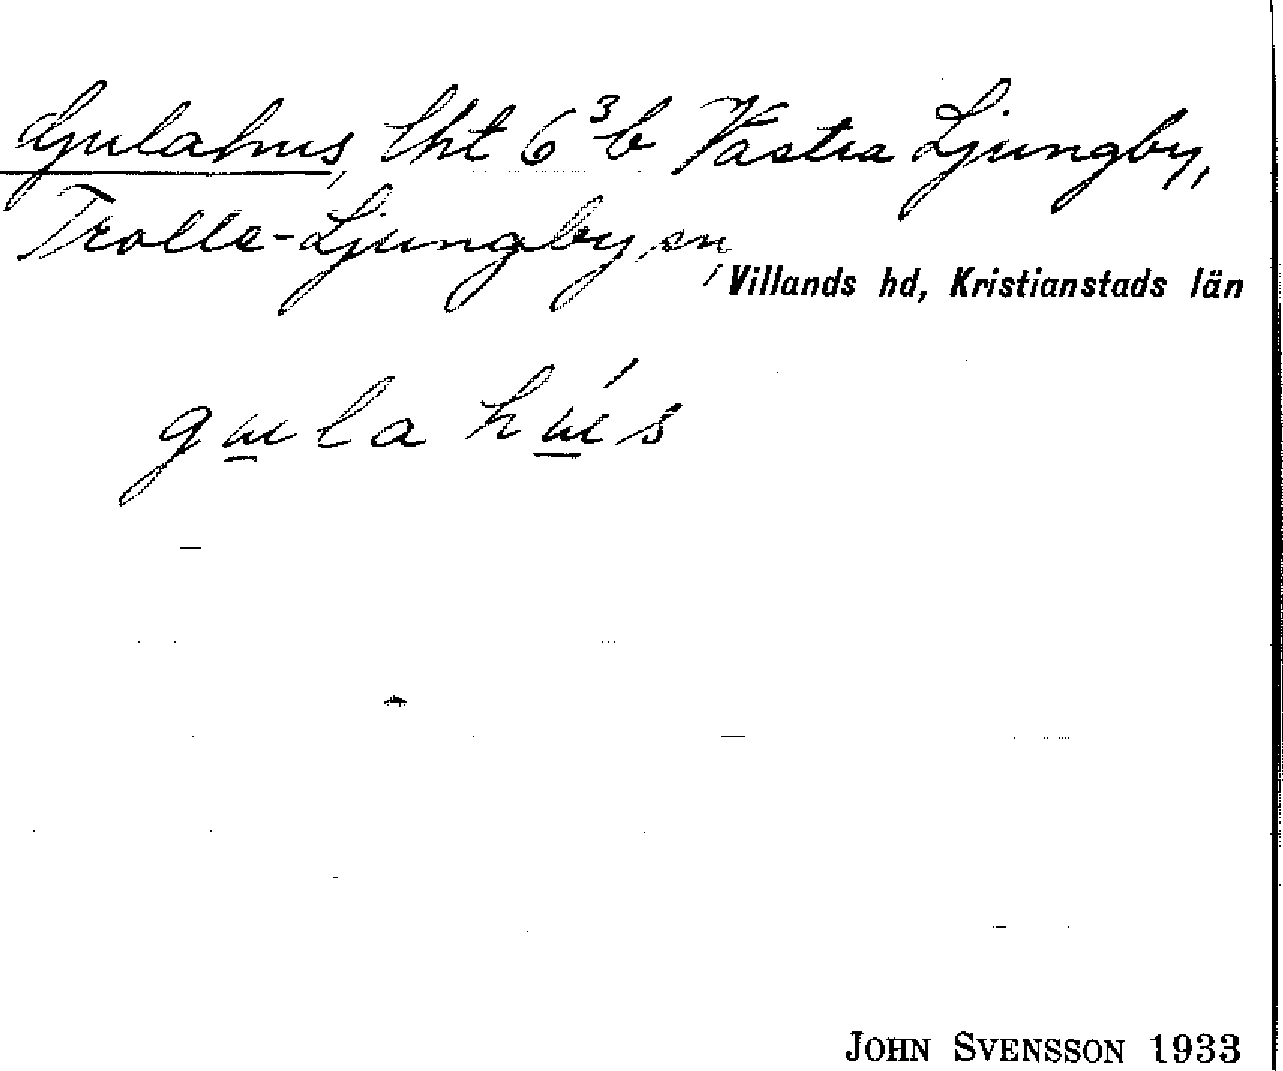 Gulahus, lht 6³b Västra Ljungby,
Trolle-Ljungby sn,
Villands hd, Kristianstads län
gula hús
JOHN SVENSSON 1933